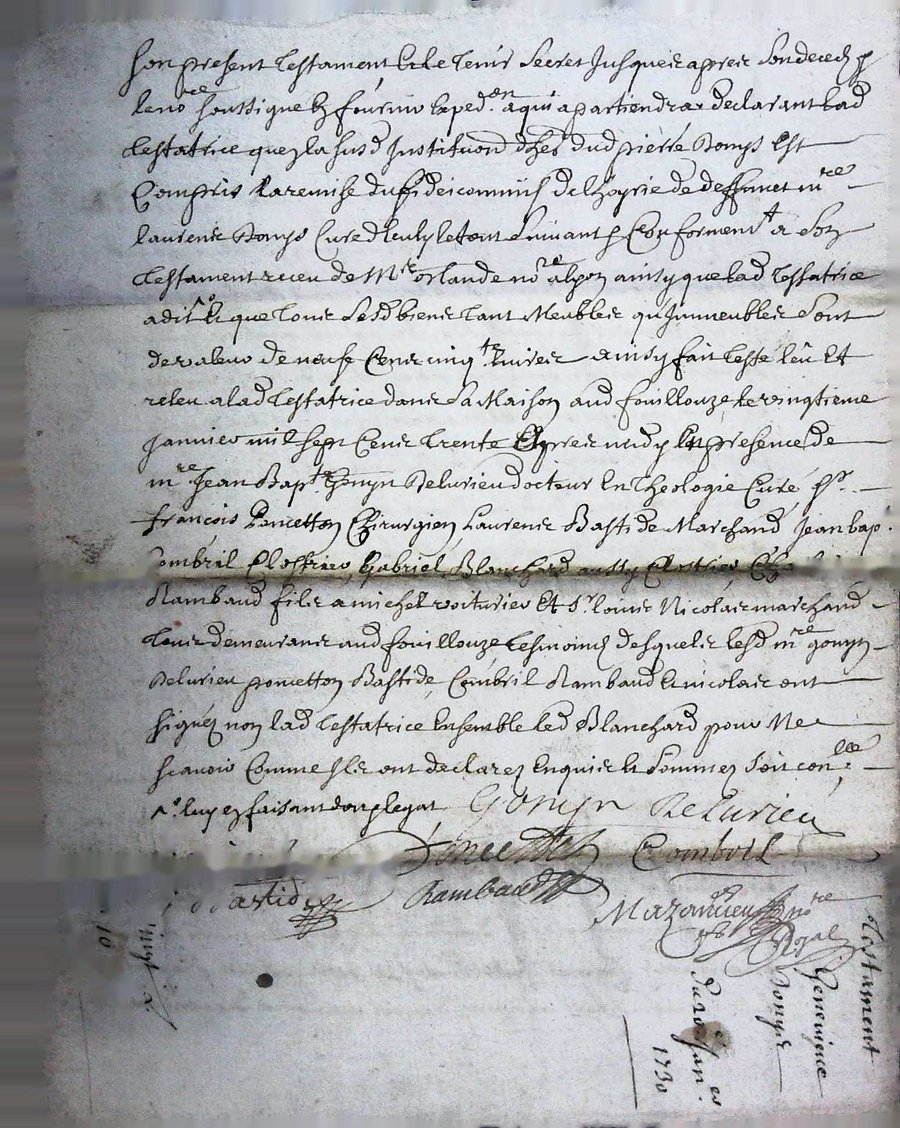 son present testament et le tenir secret jusques apres son deced p
le nore soussigné et fournir exped.on a qui apartiendra declarant lad
testatrice que en la susd institution d'her dud pierre Bonys est
Compris la remise du fideicommis de deffunct mre
laurens Bonys Curé le tout suivant et Conformemt a son
testament receu de Mre orlande nore ainsy que lad testatrice
a dit et que tous sesd biens tant Meubles qu'Immeubles sont
de valeur de neuf Cens cinqte livres ainsy fait leste leu et
releu a lad testatrice dans sa Maison aud fouillouze le vingtieme
janvier mil sept Cens trente apres midy En presence de
mre Jean Bapte Gonyn Delurieu docteur En Theologie Curé sr
françois Poncetton Chirurgien Laurens Bastide Marchand Jean bap.
Combril Clostrier Gabriel Blanchard aussy Clostrier
Rambaud fils a michel voiturier Et sr louis Nicolas marchand
tous demeurans aud fouillouze tesmoins desquels lesd mre gonyn
Delurieu poncetton Bastide Combril Rambaud et nicolas ont
signéz non lad testatrice Ensemble led Blanchard pour Ne
scavoir Comme Ils ont declarez Enquis et sommez soit conlle
Gonyn Delurieu
Poncetton Combril
Bastide Rambaud
Mazancieu nore
Royal
Testament
Genevieve
Bonys
du 20e janer
1730
10